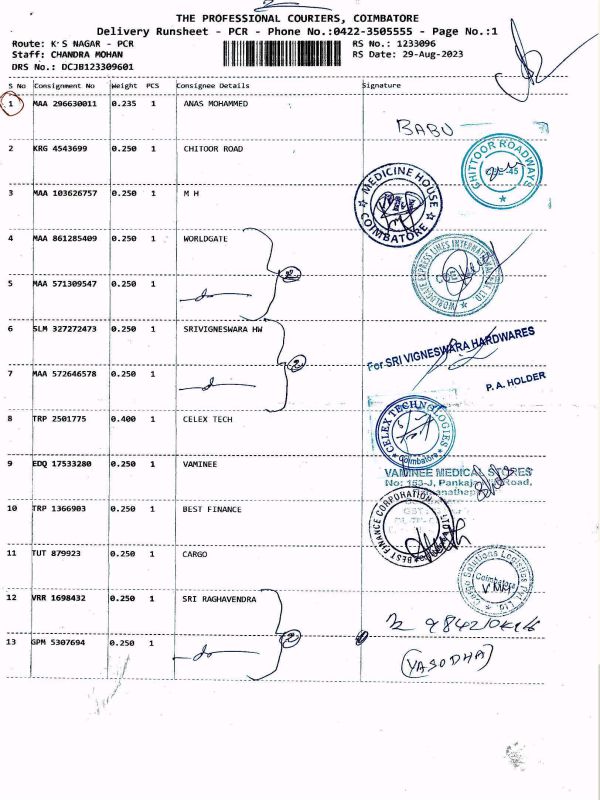 2
THE PROFESSIONAL COURIERS, COIMBATORE
Delivery Runsheet - PCR - Phone No.:0422-3505555 - Page No.:1
Route: K S NAGAR - PCR RS No.: 1233096
Staff: CHANDRA MOHAN RS Date: 29-Aug-2023
DRS No.: DCJB123309601
S No Consignment No Weight PCS Consignee Details Signature
1 MAA 296630011 0.235 1 ANAS MOHAMMED
BABU
2 KRG 4543699 0.250 1 CHITOOR ROAD
CHITTOOR ROADWAYS
3 MAA 103626757 0.250 1 M H
MEDICINE HOUSE
COIMBATORE
4 MAA 861285409 0.250 1 WORLDGATE
WORLDGATE EXPRESS LINES INTERNATIONAL PVT. LTD
2
5 MAA 571309547 0.250 1 do
6 SLM 327272473 0.250 1 SRIVIGNESWARA HW
For SRI VIGNESWARA HARDWARES
2
7 MAA 572646578 0.250 1 do
P. A. HOLDER
8 TRP 2501775 0.400 1 CELEX TECH
CELEX TECHNOLOGIES
Coimbatore
9 EDQ 17533280 0.250 1 VAMINEE
VAMINEE MEDICAL STORES
No: 153-J, Road,
10 TRP 1366903 0.250 1 BEST FINANCE
BEST FINANCE CORPORATION
11 TUT 879923 0.250 1 CARGO
Cargo Solutions Logistics Pvt. Ltd.
Coimbatore
12 VRR 1698432 0.250 1 SRI RAGHAVENDRA
2
13 GPM 5307694 0.250 1 do
(YASODHA)